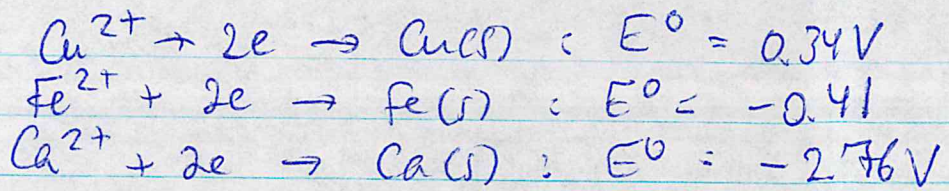 Cu²⁺ + 2e → Cu(s) : E⁰ = 0.34V
Fe²⁺ + 2e → Fe(s) : E⁰ = -0.41
Ca²⁺ + 2e → Ca(s) : E⁰ = -2.76V